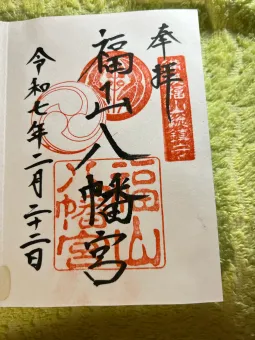 奉拝
福山総鎮守
福山八幡宮
福山
八幡宮
令和七年二月二十二日